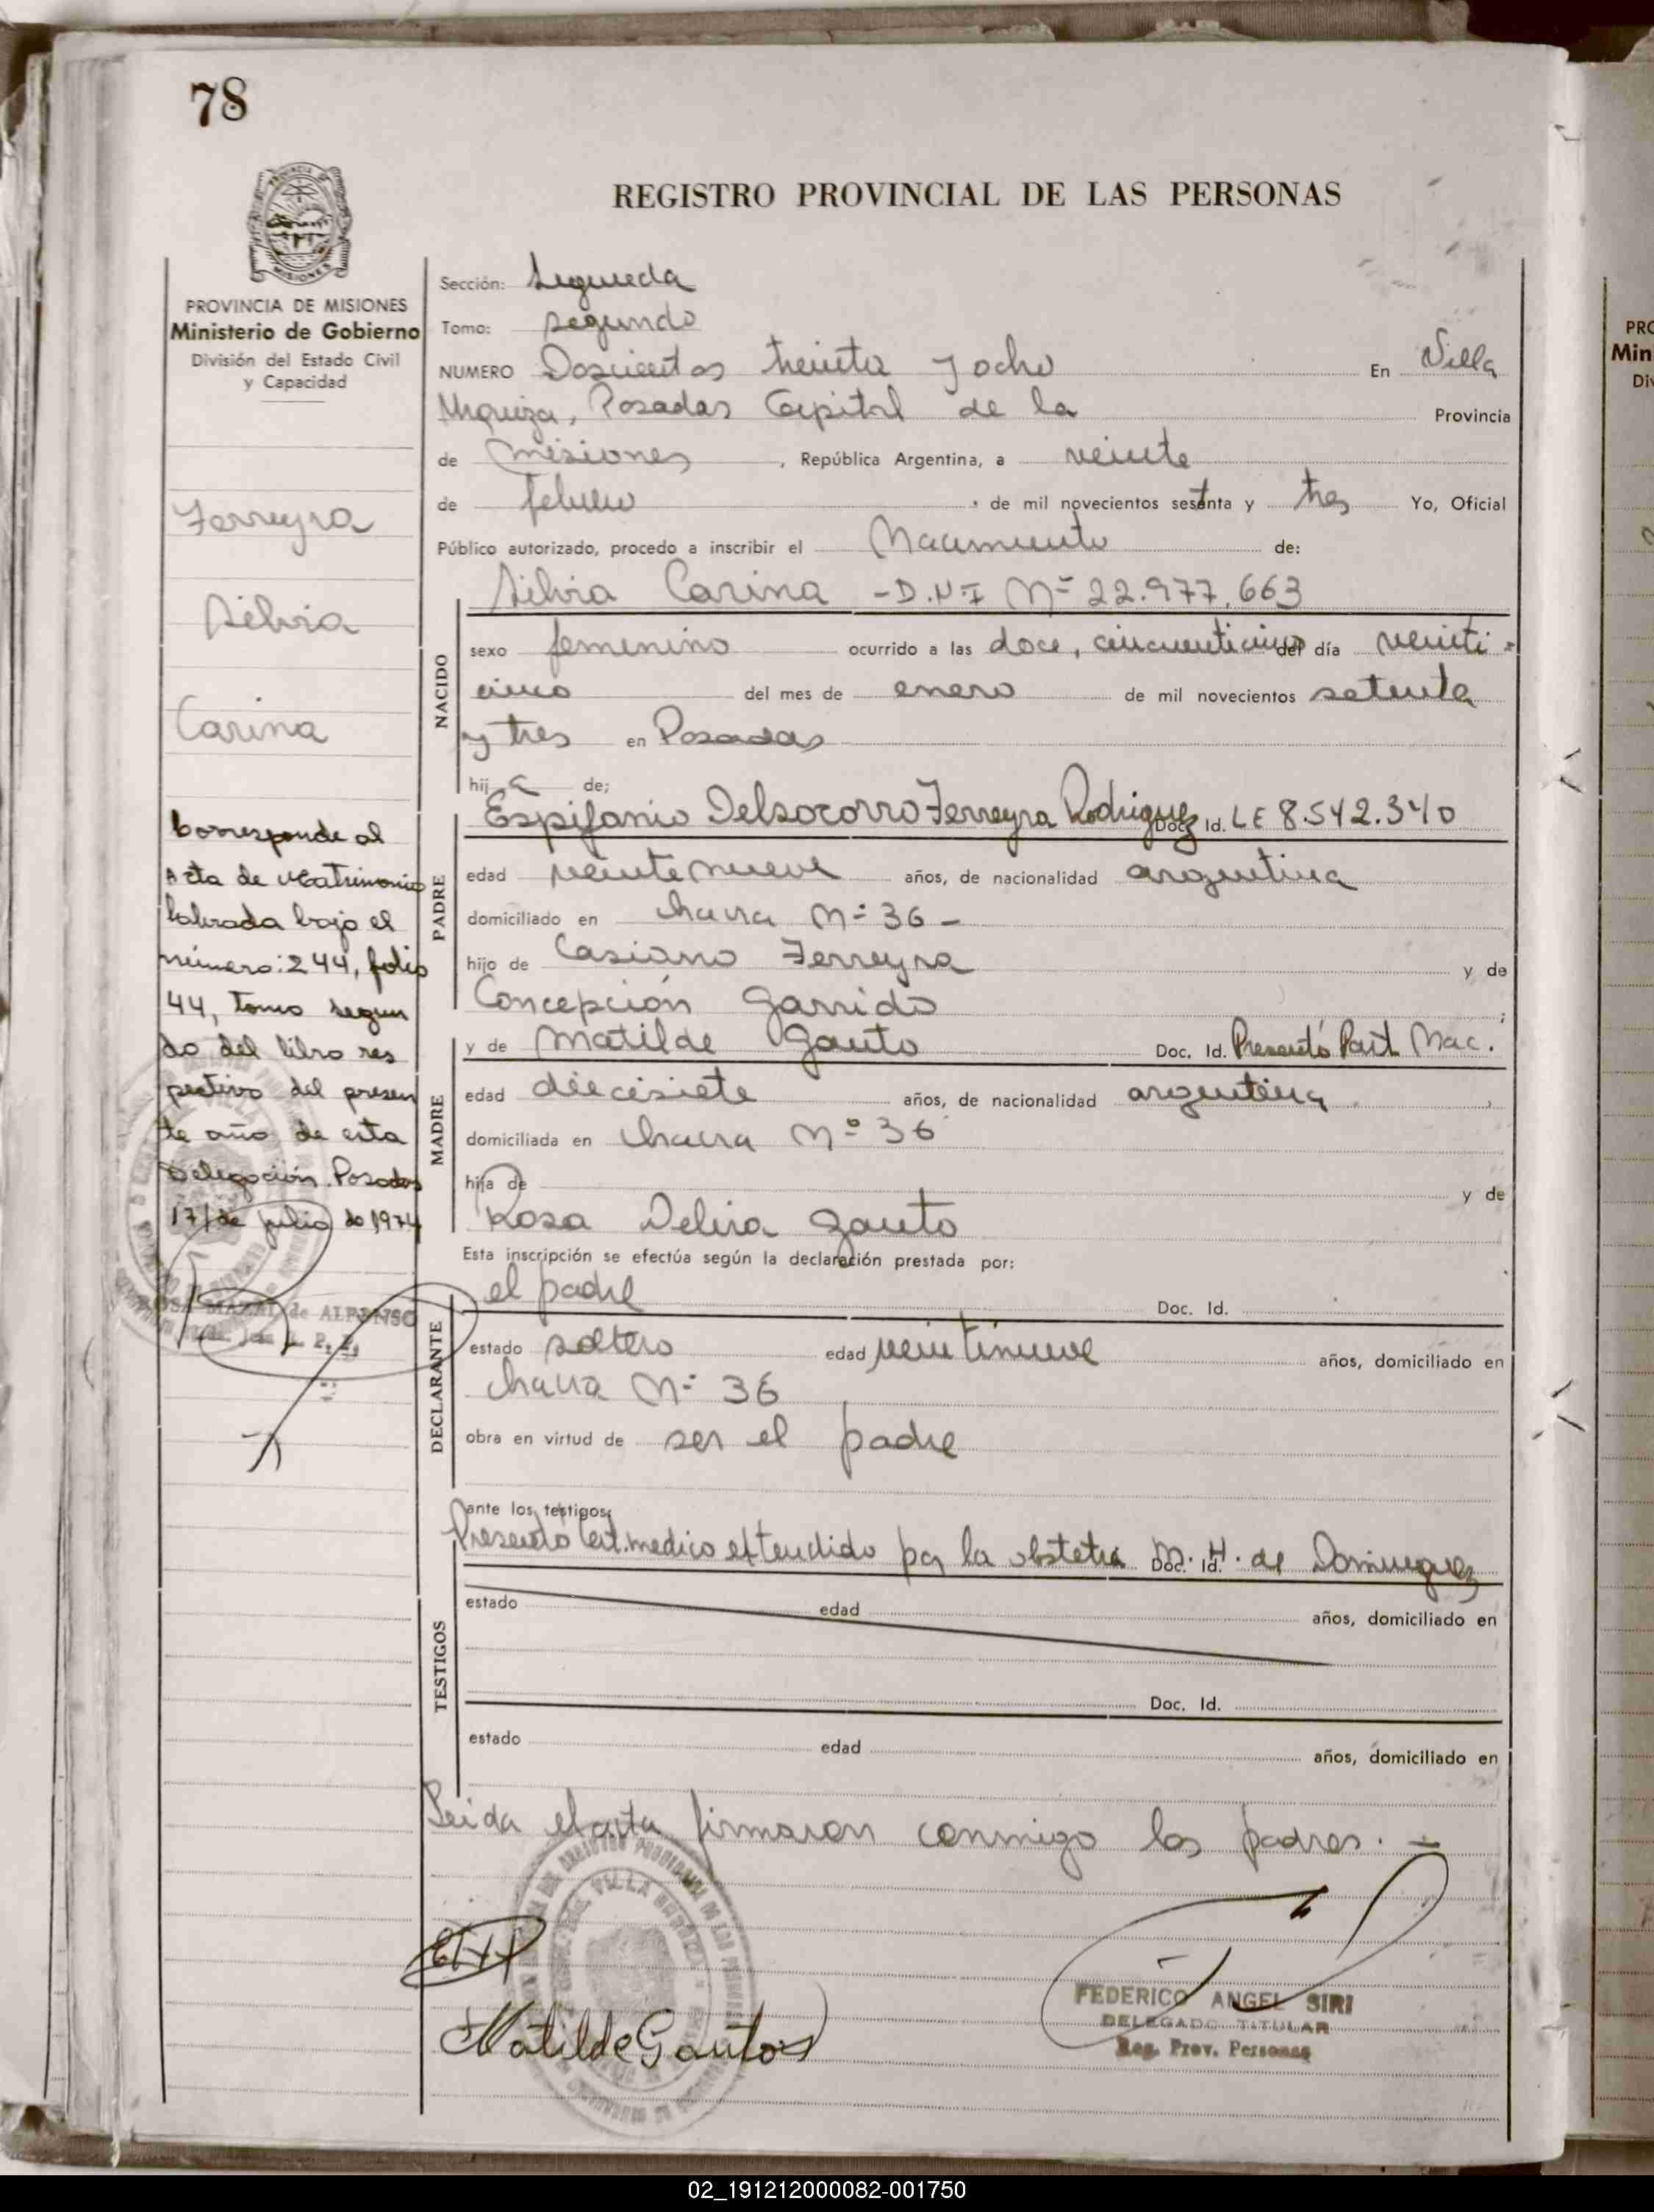 78
REGISTRO PROVINCIAL DE LAS PERSONAS
PROVINCIA DE MISIONES
Ministerio de Gobierno
División del Estado Civil
y Capacidad
Ferreyra
Silvia
Carina
Corresponde al
Acta de Matrimonio
labrada bajo el
número: 244, folio
44, tomo segun
do del libro res
pectivo del presen
te año de esta
Delegación. Posadas
17 de julio de 1974
ROSA MAZAL de ALFONSO
Sección: Segunda
Tomo: segundo
NUMERO Doscientos treinta y ocho En Villa
Urquiza, Posadas Capital de la Provincia
de Misiones, República Argentina, a veinte
de febrero, de mil novecientos setenta y tres Yo, Oficial
Público autorizado, procedo a inscribir el Nacimiento de:
Silvia Carina - D.N.I Nº 22.977.663
NACIDO
sexo femenino ocurrido a las doce, cincuenticinco del día veinti-
cinco del mes de enero de mil novecientos setenta
y tres en Posadas
hija de;
PADRE
Espifanio Delsocorro Ferreyra Rodriguez Doc. Id. LE 8.542.340
edad veintenueve años, de nacionalidad argentina
domiciliado en chacra Nº 36 -
hijo de Casiano Ferreyra y de
Concepción Garrido ;
MADRE
y de Matilde Gauto Doc. Id. Presentó Part. Nac.
edad diecisiete años, de nacionalidad argentina,
domiciliada en chacra Nº 36
hija de y de
Rosa Delira Gauto
Esta inscripción se efectúa según la declaración prestada por:
DECLARANTE
el padre Doc. Id.
estado soltero edad veintinueve años, domiciliado en
chacra Nº 36
obra en virtud de ser el padre
ante los testigos:
Presentó Cert. medico extendido por la obstetra Doc. Id. M. H. de Dominguez
TESTIGOS
estado edad años, domiciliado en
Doc. Id.
estado edad años, domiciliado en
Leida el acta firmaron conmigo los padres. -
Matilde Gauto
FEDERICO ANGEL SIRI
DELEGADO TITULAR
Reg. Prov. Personas
PRO
Min
Div
02_191212000082-001750